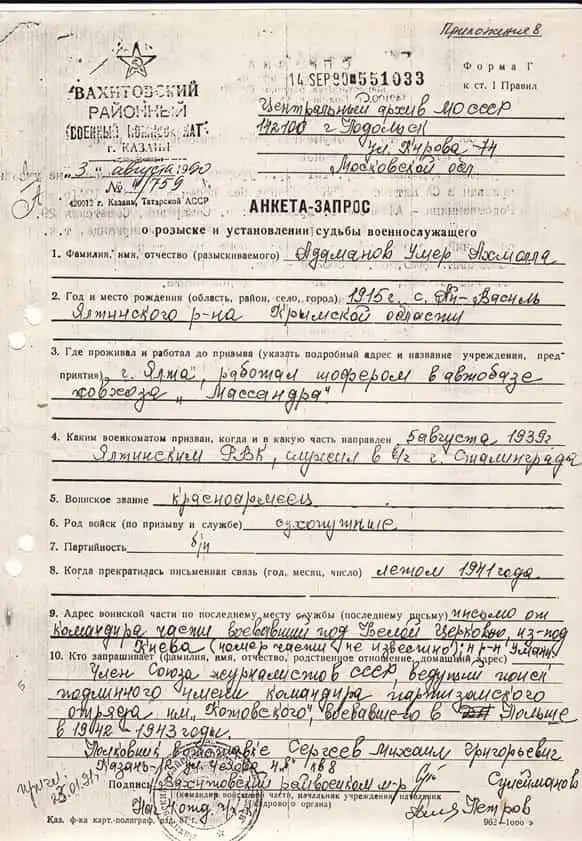 Приложение 8
14 SEP 90 *551033
Форма Г
к ст. 1 Правил
ВАХИТОВСКИЙ
РАЙОННЫЙ
ВОЕННЫЙ КОМИССАРИАТ
г. КАЗАНИ
"3" августа 1990
№ 4/759
420012 г. Казань, Татарской АССР
Центральный архив МО СССР
142100 г Подольск
ул. Кирова - 74
Московской обл
АНКЕТА-ЗАПРОС
о розыске и установлении судьбы военнослужащего
1. Фамилия, имя, отчество (разыскиваемого) Адаманов Умер Ахмолла
2. Год и место рождения (область, район, село, город) 1915 г. с. Ай-Василь
Ялтинского р-на Крымской области
3. Где проживал и работал до призыва (указать подробный адрес и название учреждения, пред
приятия) г. Ялта", работал шофером в автобазе
совхоза „Массандра"
4. Каким военкоматом призван, когда и в какую часть направлен 5 августа 1939 г
Ялтинским РВК, служил в в/ч г. Сталинграда
5. Воинское звание красноармеец
6. Род войск (по призыву и службе) сухопутные
7. Партийность б/п
8. Когда прекратилась письменная связь (год, месяц, число) летом 1941 года
9. Адрес воинской части по последнему месту службы (последнему письму) письмо от
командира части, воевавший под Белой Церковью, из-под
Киева (номер части не известно); н р-н Умани
10. Кто запрашивает (фамилия, имя, отчество, родственное отношение, домашний адрес)
Член Союза журналистов СССР, ведущий поиск
подлинного имени командира партизанского
отряда им. „Котовского", воевавшего в Польше
в 1942 - 1943 годы.
Полковник в отставке Сергеев Михаил Григорьевич
Казань- ул. Чехова 4 кв 68
Подпись Вахитовский райвоенком м-р Сулейманов
(командир воинской части, начальник учреждения, начальник
кадрового органа)
Нач 4 отд. Петров
23.01.91.
Каз. ф-ка карт.-полиграф. изд. 87 г.
962-1000 э